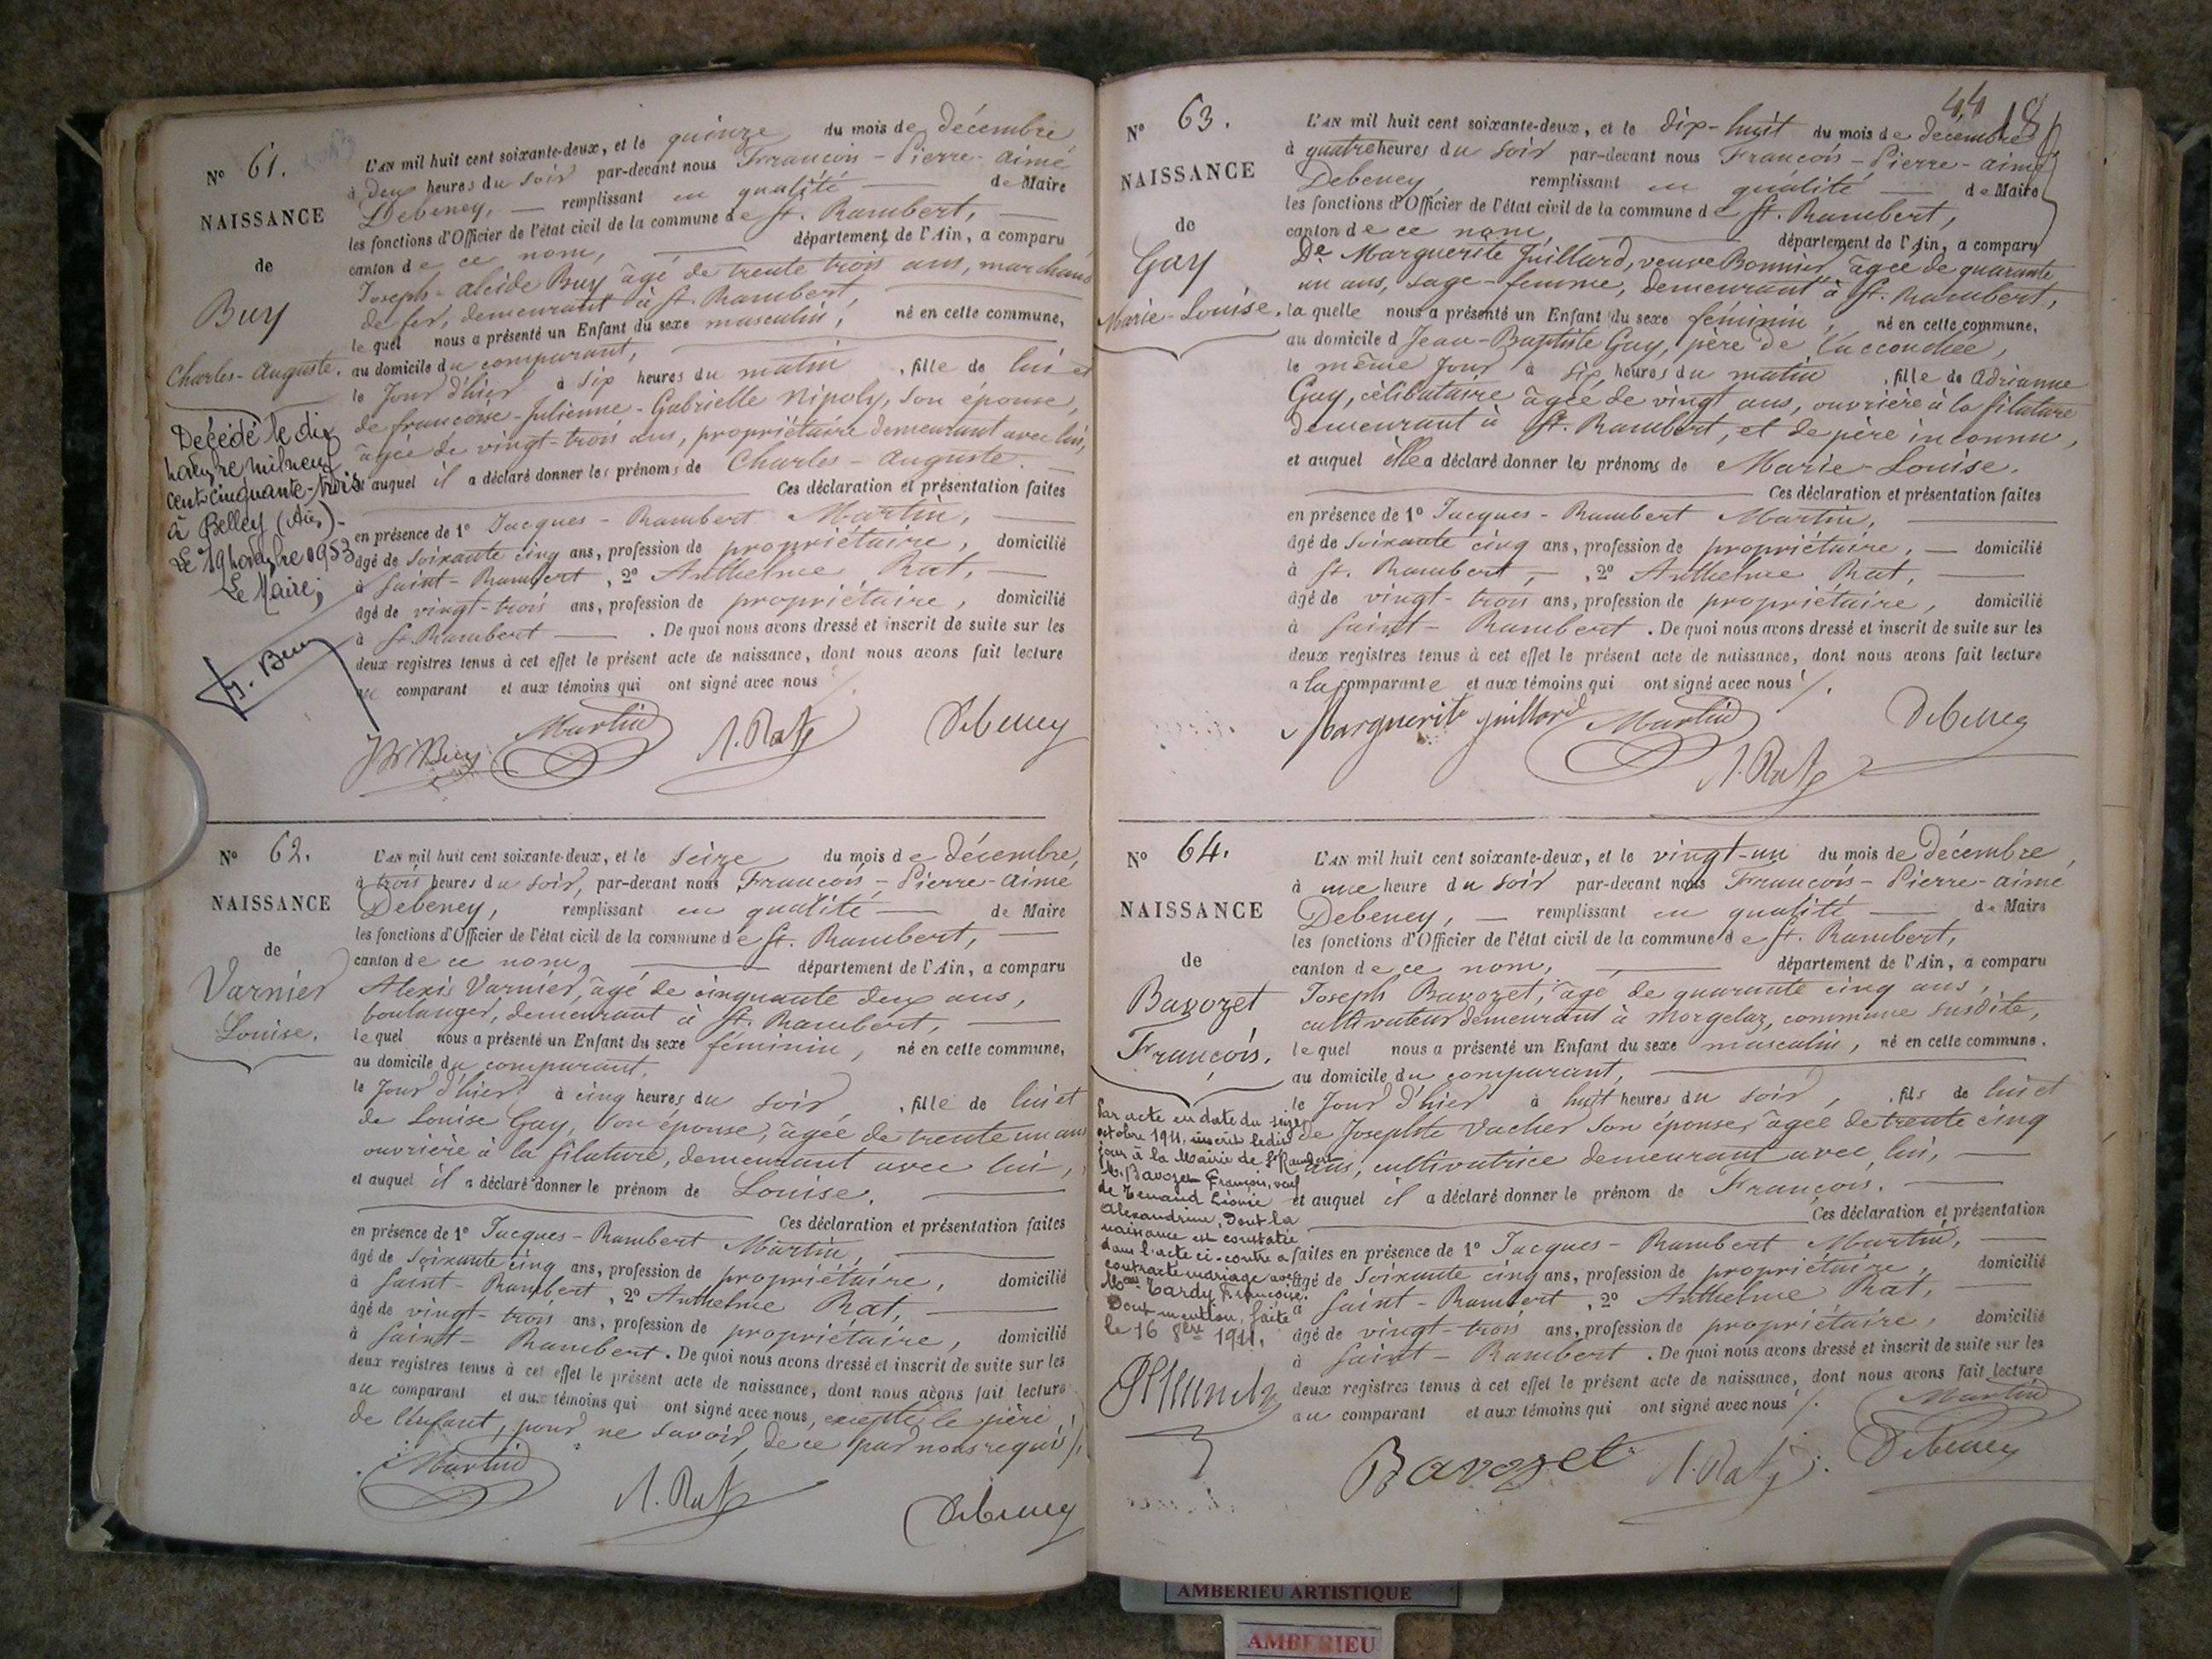 N° 61.
NAISSANCE
de
Buy
Charles-Auguste.
Décédé le dix
novembre mil neuf
cent cinquante-trois
à Belley (Ain).
Le 19 novembre 1953
Le Maire,
L'AN mil huit cent soixante-deux, et le quinze du mois de décembre
à deux heures du soir par-devant nous François-Pierre-aimé
Debeney, remplissant en qualité de Maire
les fonctions d'Officier de l'état civil de la commune de St. Rambert,
canton de ce nom, département de l'Ain, a comparu
Joseph-alcide Buy âgé de trente trois ans, marchand
de fer, demeurant à St. Rambert,
le quel nous a présenté un Enfant du sexe masculin, né en cette commune,
au domicile du comparant,
le Jour d'hier à six heures du matin, fille de lui et
de françoise-Julienne-Gabrielle Nipoly, son épouse,
âgée de vingt-trois ans, propriétaire demeurant avec lui,
et auquel il a déclaré donner les prénoms de Charles-Auguste.
Ces déclaration et présentation faites
en présence de 1° Jacques-Rambert Martin,
âgé de soixante cinq ans, profession de propriétaire, domicilié
à Saint-Rambert, 2° Anthelme Rat,
âgé de vingt-trois ans, profession de propriétaire, domicilié
à St. Rambert. De quoi nous avons dressé et inscrit de suite sur les
deux registres tenus à cet effet le présent acte de naissance, dont nous avons fait lecture
au comparant et aux témoins qui ont signé avec nous
Buy Martin A. Rat Debeney
N° 62.
NAISSANCE
de
Varnier
Louise.
L'AN mil huit cent soixante-deux, et le seize du mois de décembre,
à trois heures du soir, par-devant nous François-Pierre-aimé
Debeney, remplissant en qualité de Maire
les fonctions d'Officier de l'état civil de la commune de St. Rambert,
canton de ce nom, département de l'Ain, a comparu
Alexis Varnier, âgé de cinquante deux ans,
boulanger, demeurant à St. Rambert,
le quel nous a présenté un Enfant du sexe féminin, né en cette commune,
au domicile du comparant,
le Jour d'hier à cinq heures du soir, fille de lui et
de Louise Gay, son épouse, âgée de trente un ans
ouvrière à la filature, demeurant avec lui,
et auquel il a déclaré donner le prénom de Louise.
Ces déclaration et présentation faites
en présence de 1° Jacques-Rambert Martin,
âgé de soixante cinq ans, profession de propriétaire, domicilié
à Saint-Rambert, 2° Anthelme Rat,
âgé de vingt-trois ans, profession de propriétaire, domicilié
à Saint-Rambert. De quoi nous avons dressé et inscrit de suite sur les
deux registres tenus à cet effet le présent acte de naissance, dont nous avons fait lecture
au comparant et aux témoins qui ont signé avec nous, excepté le père
de l'enfant, pour ne savoir, de ce par nous requis.
Martin A. Rat Debeney
44
N° 63.
NAISSANCE
de
Gay
Marie-Louise.
L'AN mil huit cent soixante-deux, et le dix-huit du mois de décembre
à quatre heures du soir par-devant nous François-Pierre-aimé
Debeney remplissant en qualité de Maire
les fonctions d'Officier de l'état civil de la commune de St. Rambert,
canton de ce nom, département de l'Ain, a comparu
De Marguerite Juillard, veuve Bonnier, âgée de quarante
un ans, sage-femme, demeurant à St. Rambert,
la quelle nous a présenté un Enfant du sexe féminin, né en cette commune,
au domicile d Jean-Baptiste Gay, père de l'accouchée,
le même Jour à six heures du matin, fille de Adrianne
Gay, célibataire âgée de vingt ans, ouvrière à la filature
demeurant à St. Rambert, et de père inconnu,
et auquel elle a déclaré donner les prénoms de Marie-Louise.
Ces déclaration et présentation faites
en présence de 1° Jacques-Rambert Martin,
âgé de soixante cinq ans, profession de propriétaire, domicilié
à St. Rambert, 2° Anthelme Rat,
âgé de vingt-trois ans, profession de propriétaire, domicilié
à Saint-Rambert. De quoi nous avons dressé et inscrit de suite sur les
deux registres tenus à cet effet le présent acte de naissance, dont nous avons fait lecture
a la comparante et aux témoins qui ont signé avec nous.
Marguerite juillard Martin Debeney
A. Rat
N° 64.
NAISSANCE
de
Bavozet
François.
Par acte en date du seize
octobre 1911, inscrit ledit
jour à la Mairie de St Rambert
M. Bavozet François, veuf
de Tenand Léonie
Alexandrine, dont la
naissance est constatée
dans l'acte ci-contre a
contracté mariage avec
Tardy Françoise.
Dont mention faite
le 16 8bre 1911.
L'AN mil huit cent soixante-deux, et le vingt-un du mois de décembre,
à une heure du soir par-devant nous François-Pierre-aimé
Debeney, remplissant en qualité de Maire
les fonctions d'Officier de l'état civil de la commune de St. Rambert,
canton de ce nom, département de l'Ain, a comparu
Joseph Bavozet, âgé de quarante cinq ans,
cultivateur demeurant à Morgelaz, commune susdite,
le quel nous a présenté un Enfant du sexe masculin, né en cette commune.
au domicile du comparant,
le Jour d'hier à huit heures du soir, fils de lui et
de Josephte Vacher son épouse, âgée de trente cinq
ans, cultivatrice demeurant avec lui,
et auquel il a déclaré donner le prénom de François.
Ces déclaration et présentation
faites en présence de 1° Jacques-Rambert Martin,
âgé de soixante cinq ans, profession de propriétaire, domicilié
à Saint-Rambert, 2° Anthelme Rat,
âgé de vingt-trois ans, profession de propriétaire, domicilié
à Saint-Rambert. De quoi nous avons dressé et inscrit de suite sur les
deux registres tenus à cet effet le présent acte de naissance, dont nous avons fait lecture
au comparant et aux témoins qui ont signé avec nous. Martin
Bavozet A. Rat Debeney
AMBERIEU ARTISTIQUE
AMBERIEU